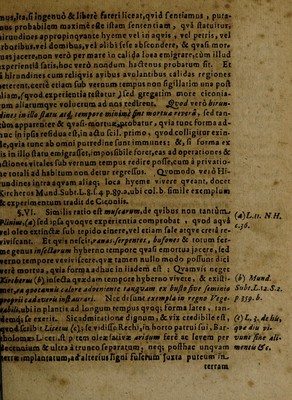 mus, ita, si ingenuò & liberè fateri liceat, quid sentiamus, puta-
mus probabilem maximè esse istam sententiam, quâ statuitur,
hirundines appropinquante hyeme vel in aquis, vel petris, vel
arboribus, vel domibus, vel alibi sese abscondere, & quasi mor-
tuas jacere, non verò per mare in calida loca emigrare, cùm illud
experientia satis, hoc verò nondum hactenus probatum sit. Et
si hirundines cum reliquis avibus avolantibus calidas regiones
peterent, certè etiam sub vernum tempus non sigillatim una post
aliam, (quod experientia testatur,) sed gregatim more ciconia-
rum aliarumque volucrum ad nos redirent. Quod verò hirun-
dines in illo statu atq, tempore minimè sint mortuæ reverà, sed tan-
tùm apparenter & quasi-mortuæ, probatur, quia tunc forma ad-
huc in ipsis residua est, in actu scil. primo, quod colligitur exin-
de, quia tunc ab omni putredine sunt immunes: &, si forma ex
iis in illo statu emigrasset, impossibile foret, eas ad operationes &
actiones vitales sub vernum tempus redire posse, cum à privatio-
ne totali ad habitum non detur regressus. Quomodo verò Hi-
rundines intra aquam aliaq; loca hyeme vivere queant, docet
Kircherus Mund. Subt. L. 8. f. 4. p. 89. a, ubi col. b. simile exemplum
& experimentum tradit de Ciconiis.
§. VI. Similis ratio est muscarum, de quibus non tantùm (a) L. 11. N. H.
Plinius, (a) sed ipsa quoque experientia comprobat, quod aquâ c. 36.
vel oleo extinctæ sub tepido cinere, vel etiam sale atque creta re-
viviscant. Et quis nescit, ranas, serpentes, bufones & totum fer-
me genus insectorum hyberno tempore quasi emortua jacere, sed
verno tempore reviviscere, quæ tamen nullo modo possunt dici
verè mortua, quia forma adhuc in iisdem est: Quamvis neget
Kircherus (b) insecta quædam tempore hyberno vivere, & existi- (b) Mund.
met, ea quotannis calore adveniente tanquam ex busto sive seminio Subt. L. 12. S. 2.
proprii cadaveris instaurari. Nec desunt exempla in regno Vege- p 359. b.
tabili, ubi in plantis ad longum tempus quoq; forma lates, tan-
demq; se exerit. Sic admiratione dignum, & vix credibile est, (c) L. 3. de his,
quod scribit Licetus (c); se vidisse Rechi, in horto patrui sui, Bar- qui diu vi-
tholomæi Liceti, stipitem oleæ sativæ aridum ferè ac sevem per vunt sine ali-
decennium & ultra à trunco separatum; neq; posthac unquam mento &c.
terræ implantatum, ad alterius signi suscrum juxta puteum in-
terram